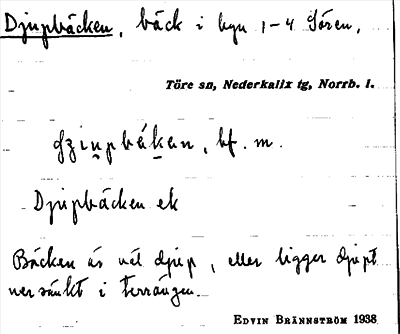 Djupbäcken, bäck i byn 1-4 Sören,
Töre sn, Nederkalix tg, Norrb. l.
bf. m.
Djupbäcken ek
Bäcken är väl djup, eller ligger djupt
nersänkt i terrängen.
EDVIN BRÄNNSTRÖM 1938